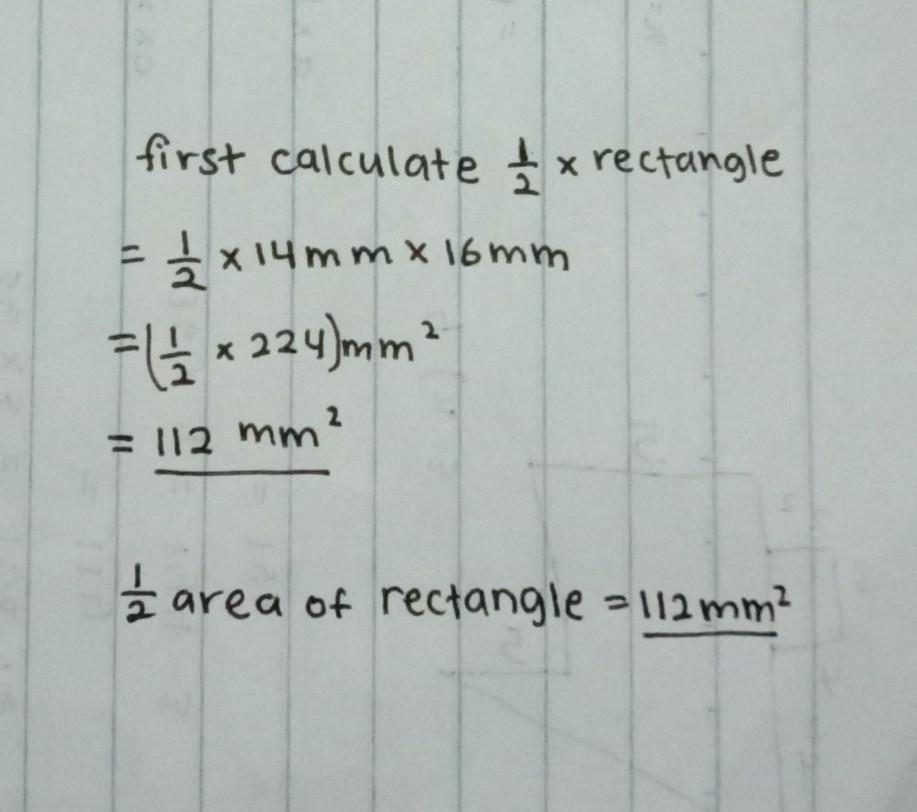 first calculate 1/2 x rectangle
= 1/2 x 14mm x 16mm
= (1/2 x 224)mm²
= 112 mm²
1/2 area of rectangle = 112mm²